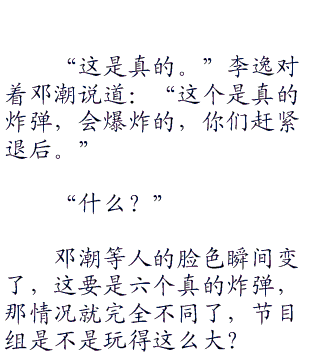 “这是真的。”李逸对
着邓潮说道：“这个是真的
炸弹，会爆炸的，你们赶紧
退后。”
“什么？”
邓潮等人的脸色瞬间变
了，这要是六个真的炸弹，
那情况就完全不同了，节目
组是不是玩得这么大？